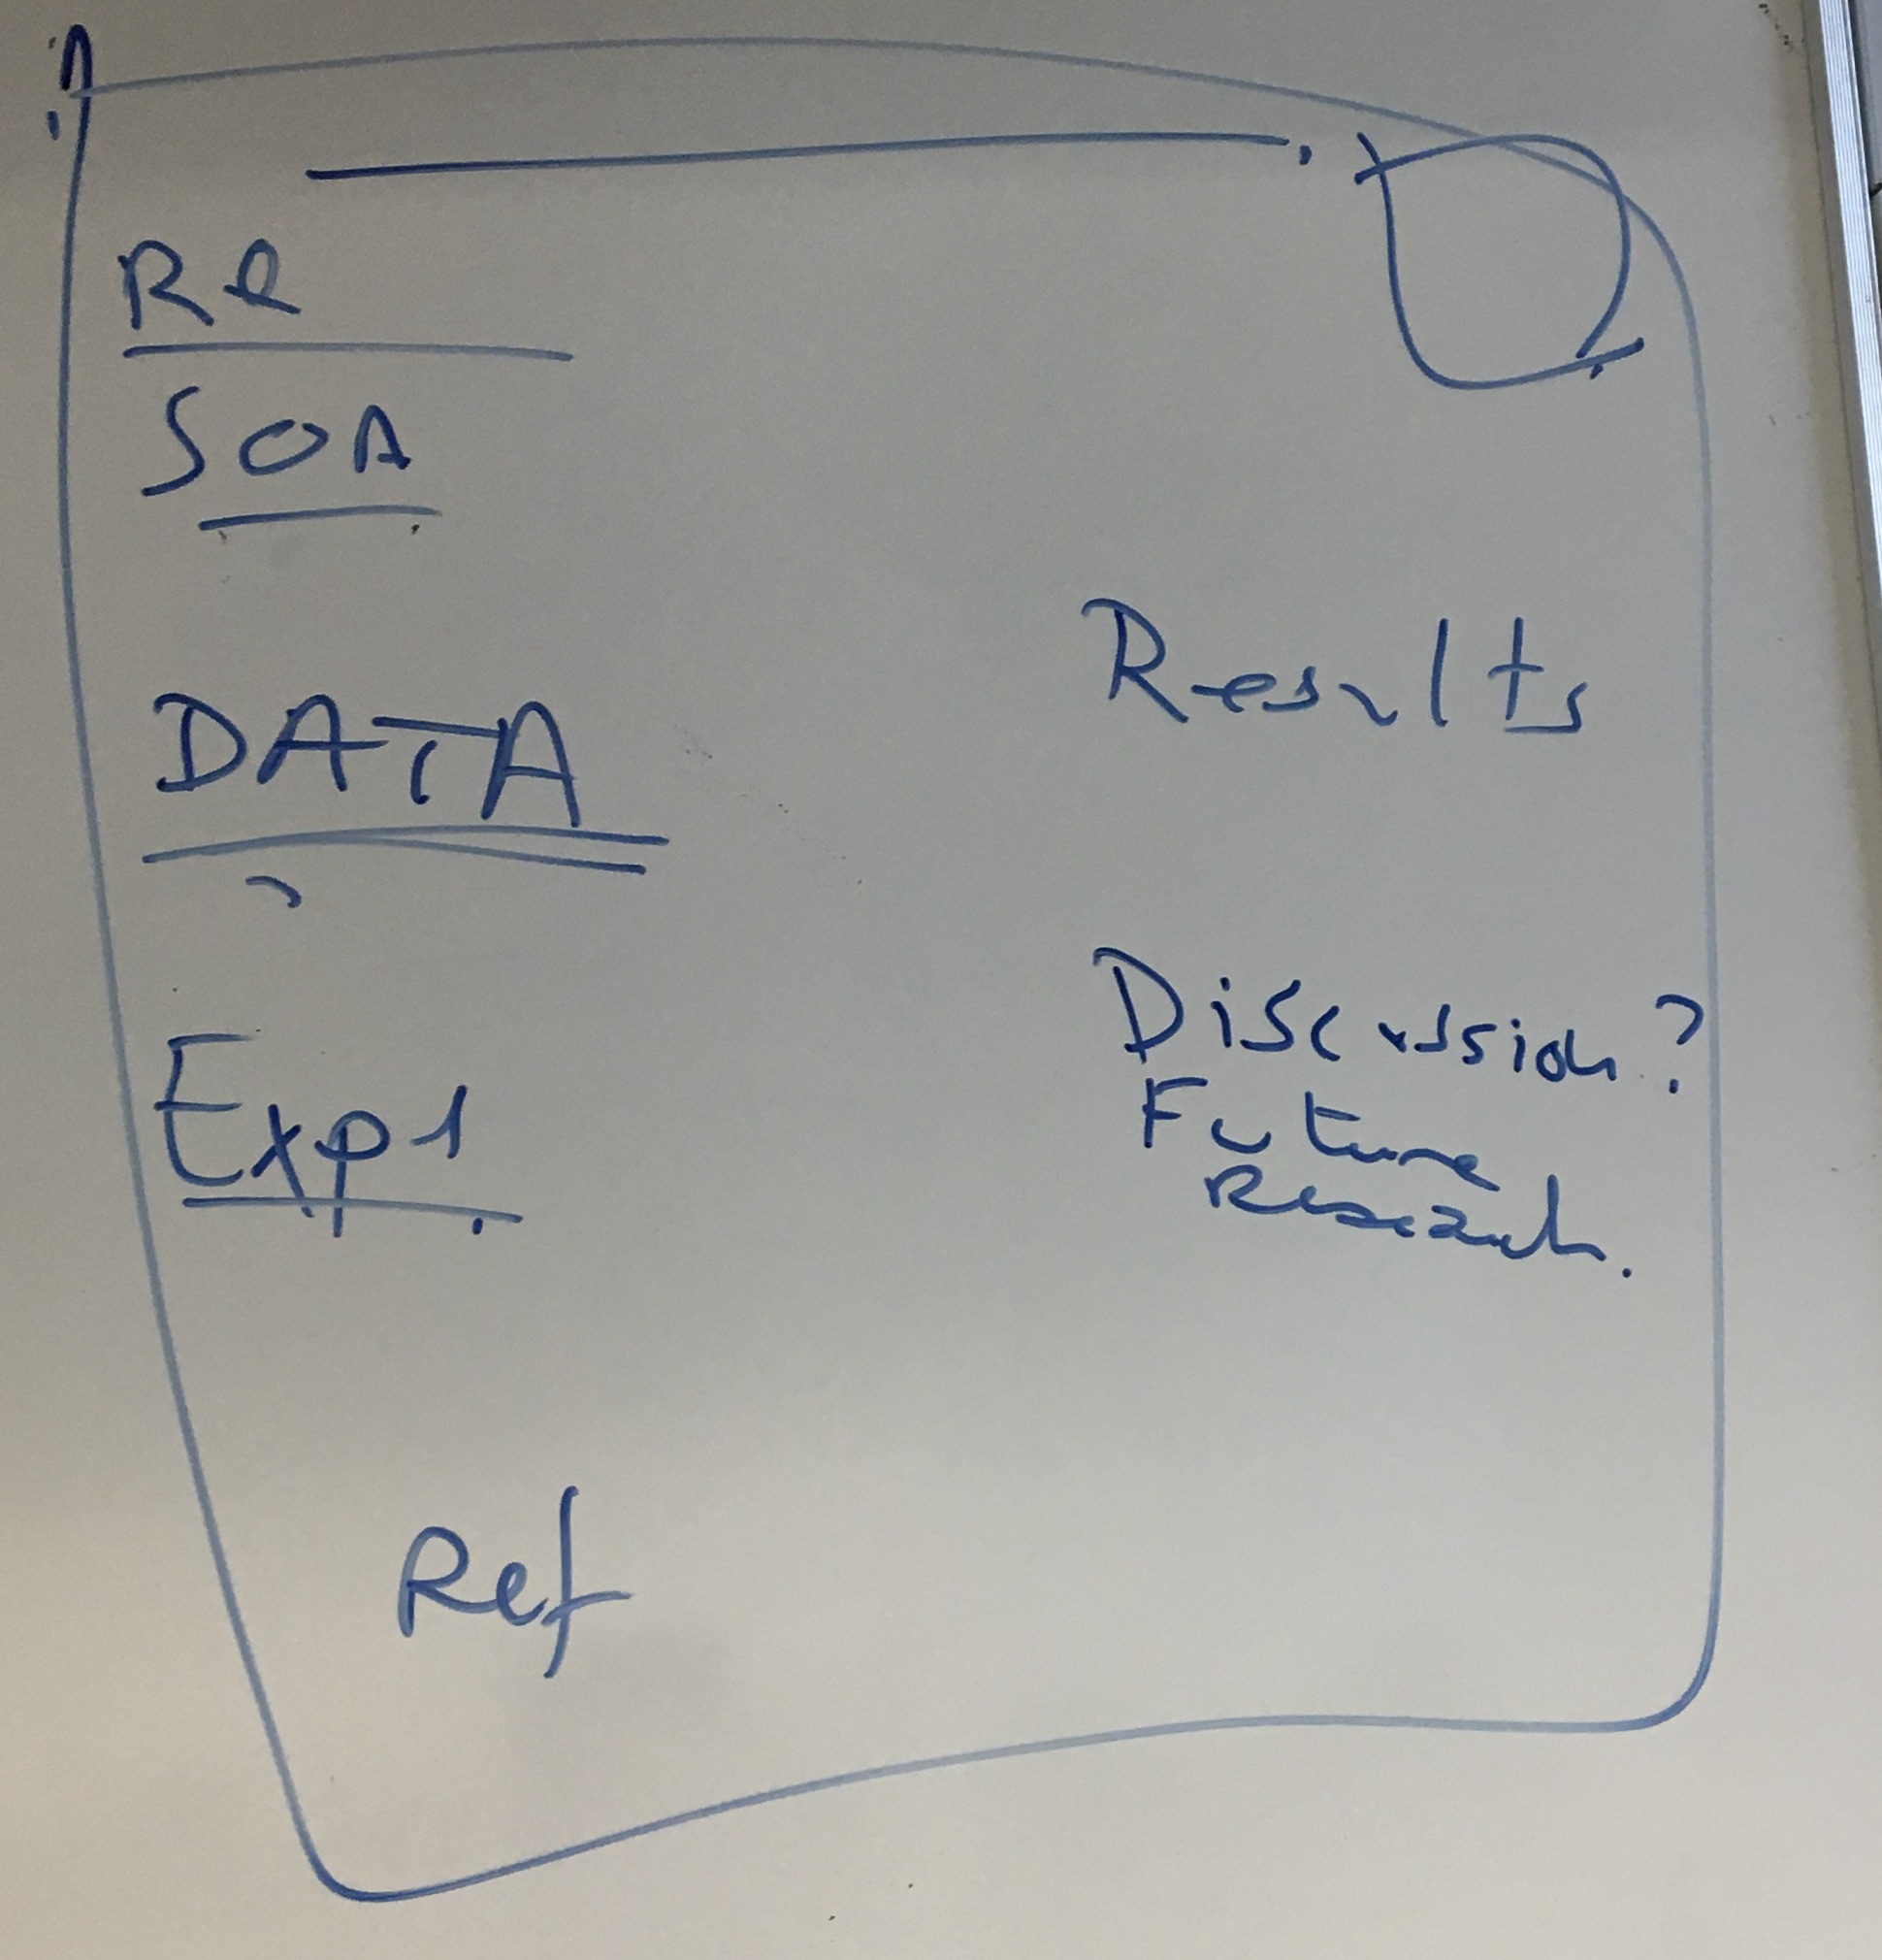 RR
SOA
DATA
Exp1
Ref
Results
Discussion?
Future
Research.